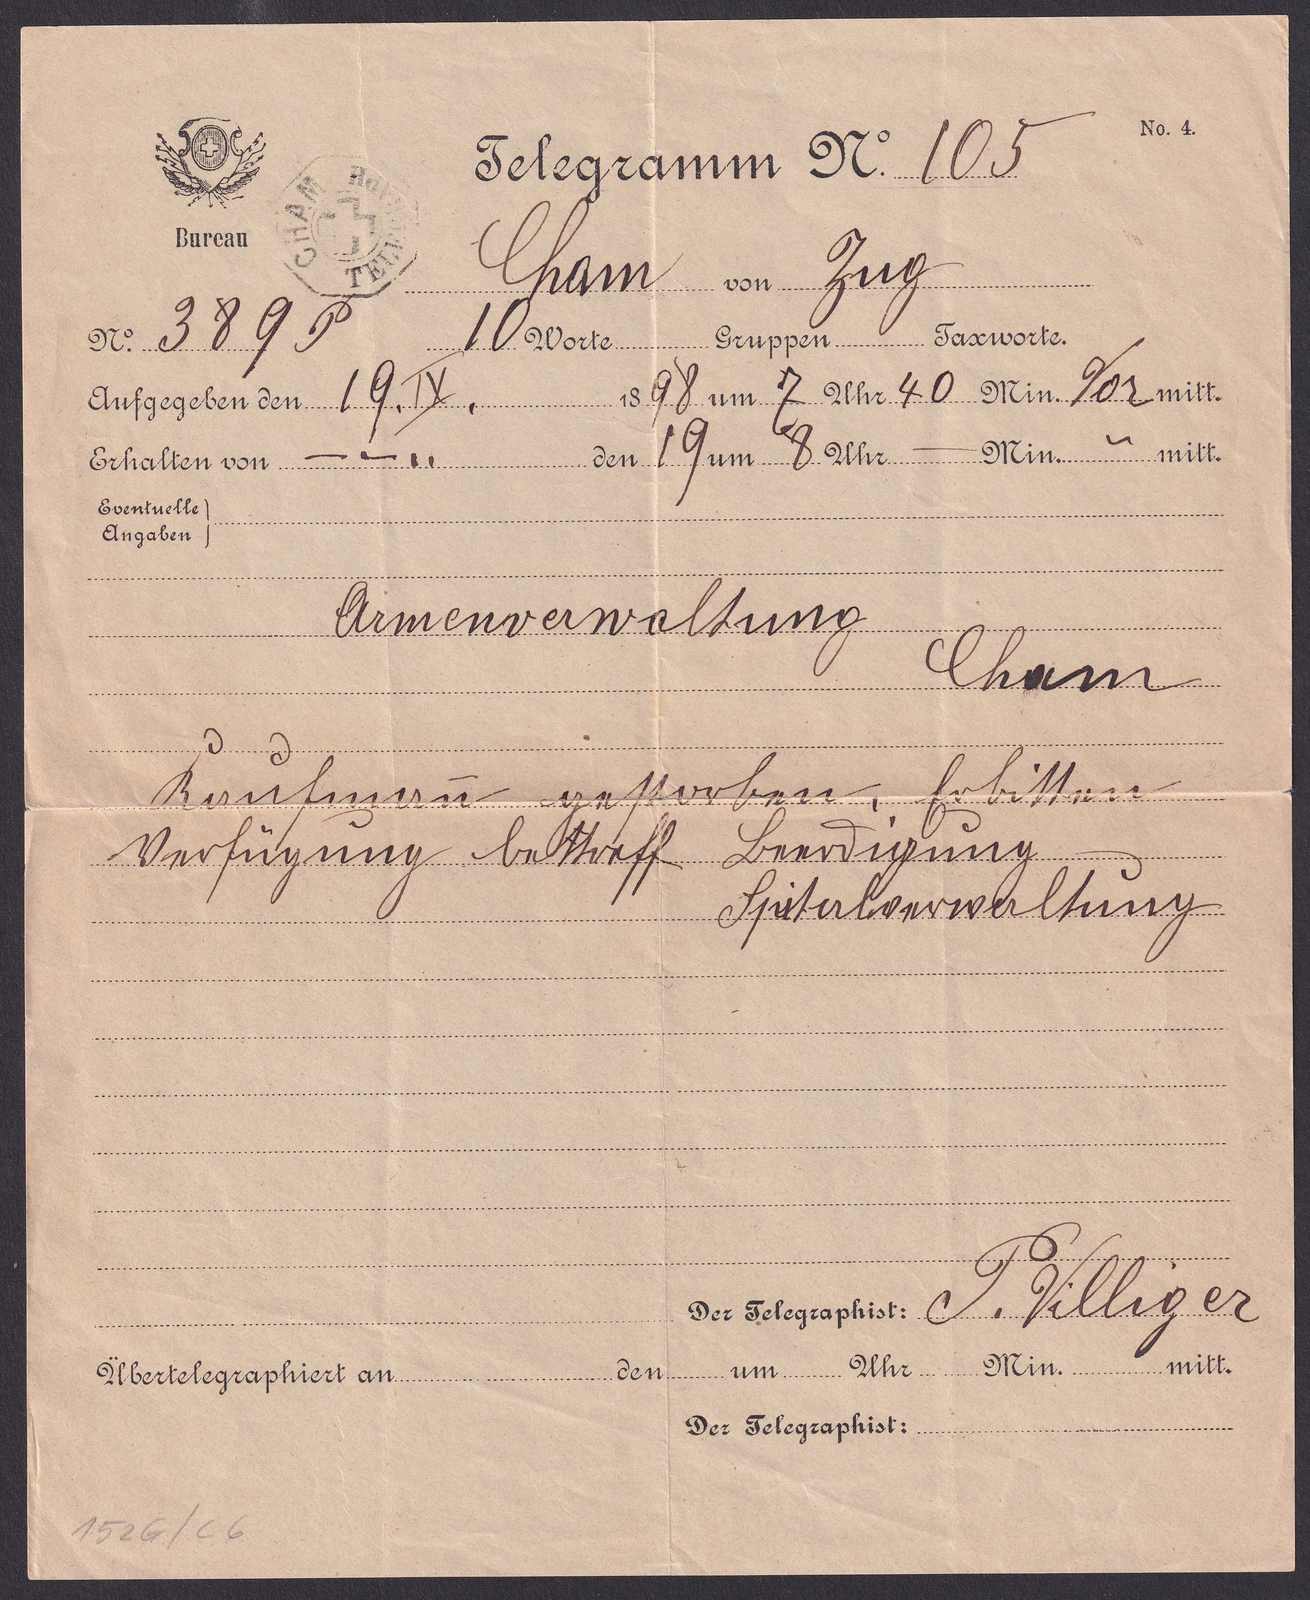 No. 4.
Telegramm No. 105
Bureau
CHAM
TELE
Cham von Zug
No. 389 P 10 Worte Gruppen Taxworte.
Aufgegeben den 19. IX. 1898 um 7 Uhr 40 Min. Vor mitt.
Erhalten von — „ den 19 um 8 Uhr — Min. „ mitt.
Eventuelle
Angaben
Armenverwaltung
Cham
Kaufmañ gestorben, Erbitten
Verfügung betreff Beerdigung
Spitalverwaltung
Der Telegraphist: T. Villiger
Übertelegraphiert an den um Uhr Min. mitt.
Der Telegraphist:
152G/C6